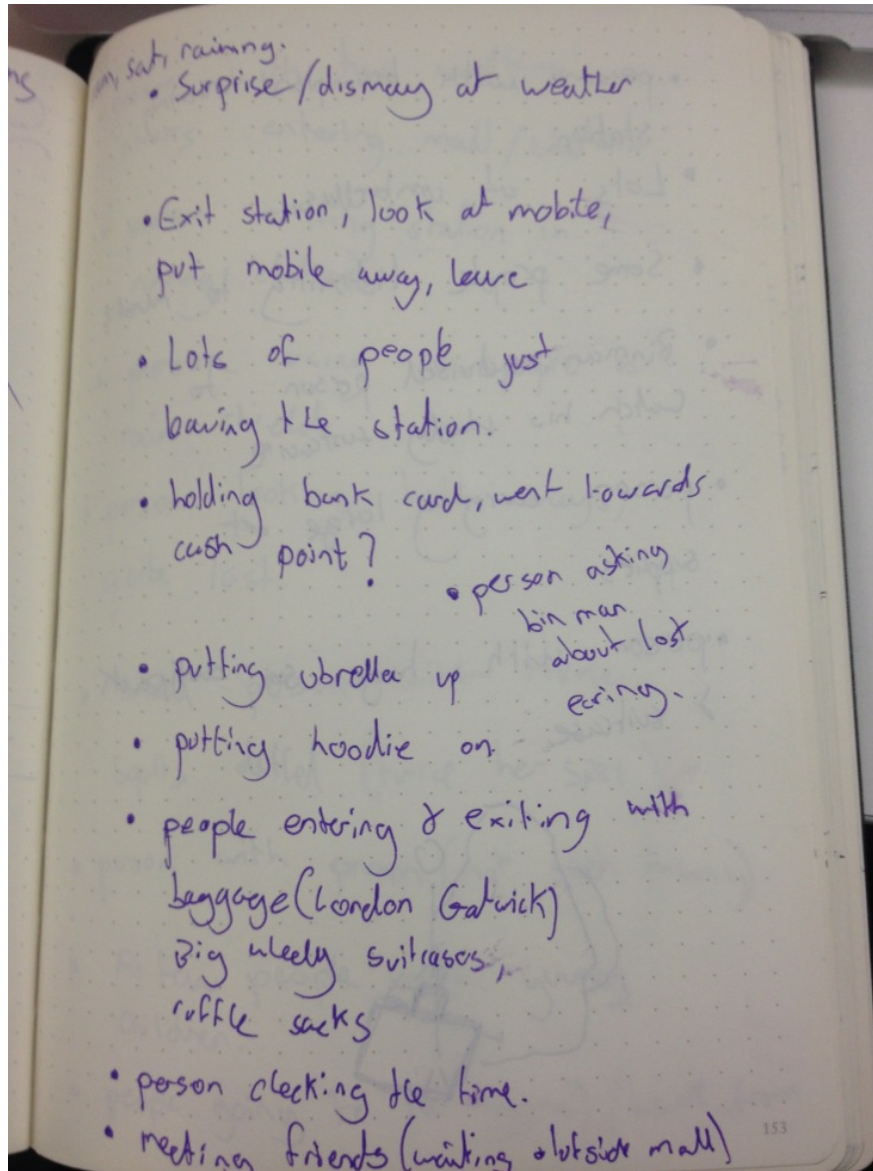 sat, raining.
• Surprise/dismay at weather
• Exit station, look at mobile,
put mobile away, leave
• Lots of people just
leaving the station.
• holding bank card, went towards
cash point?
• person asking
bin man
about lost
earing.
• putting ubrella up
• putting hoodie on
• people entering & exiting with
baggage (London Gatwick)
Big wheely suitcases,
ruffle sacks
• person checking the time.
• meeting friends (waiting outside mall)
153